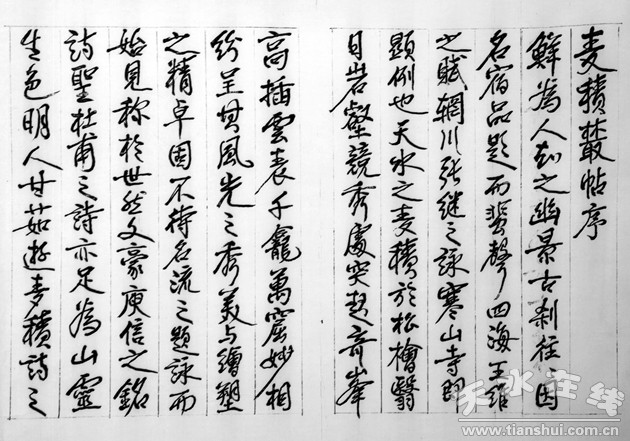 麦積叢帖序
鮮為人知之幽景古刹往〻因
名宿品題而蜚聲四海王維
之賦輞川張继之詠寒山寺即
顕例也天水之麦積於松檜翳
日岩壑競秀處突起奇峯
高插雲表千龕萬窟妙相
紛呈其風光之秀美与繪塑
之精卓固不待名流之題詠而
始見称於世然文豪庾信之銘
詩聖杜甫之詩亦足為山靈
生色明人甘茹遊麦積詩之
天水在线
www.tianshui.com.cn